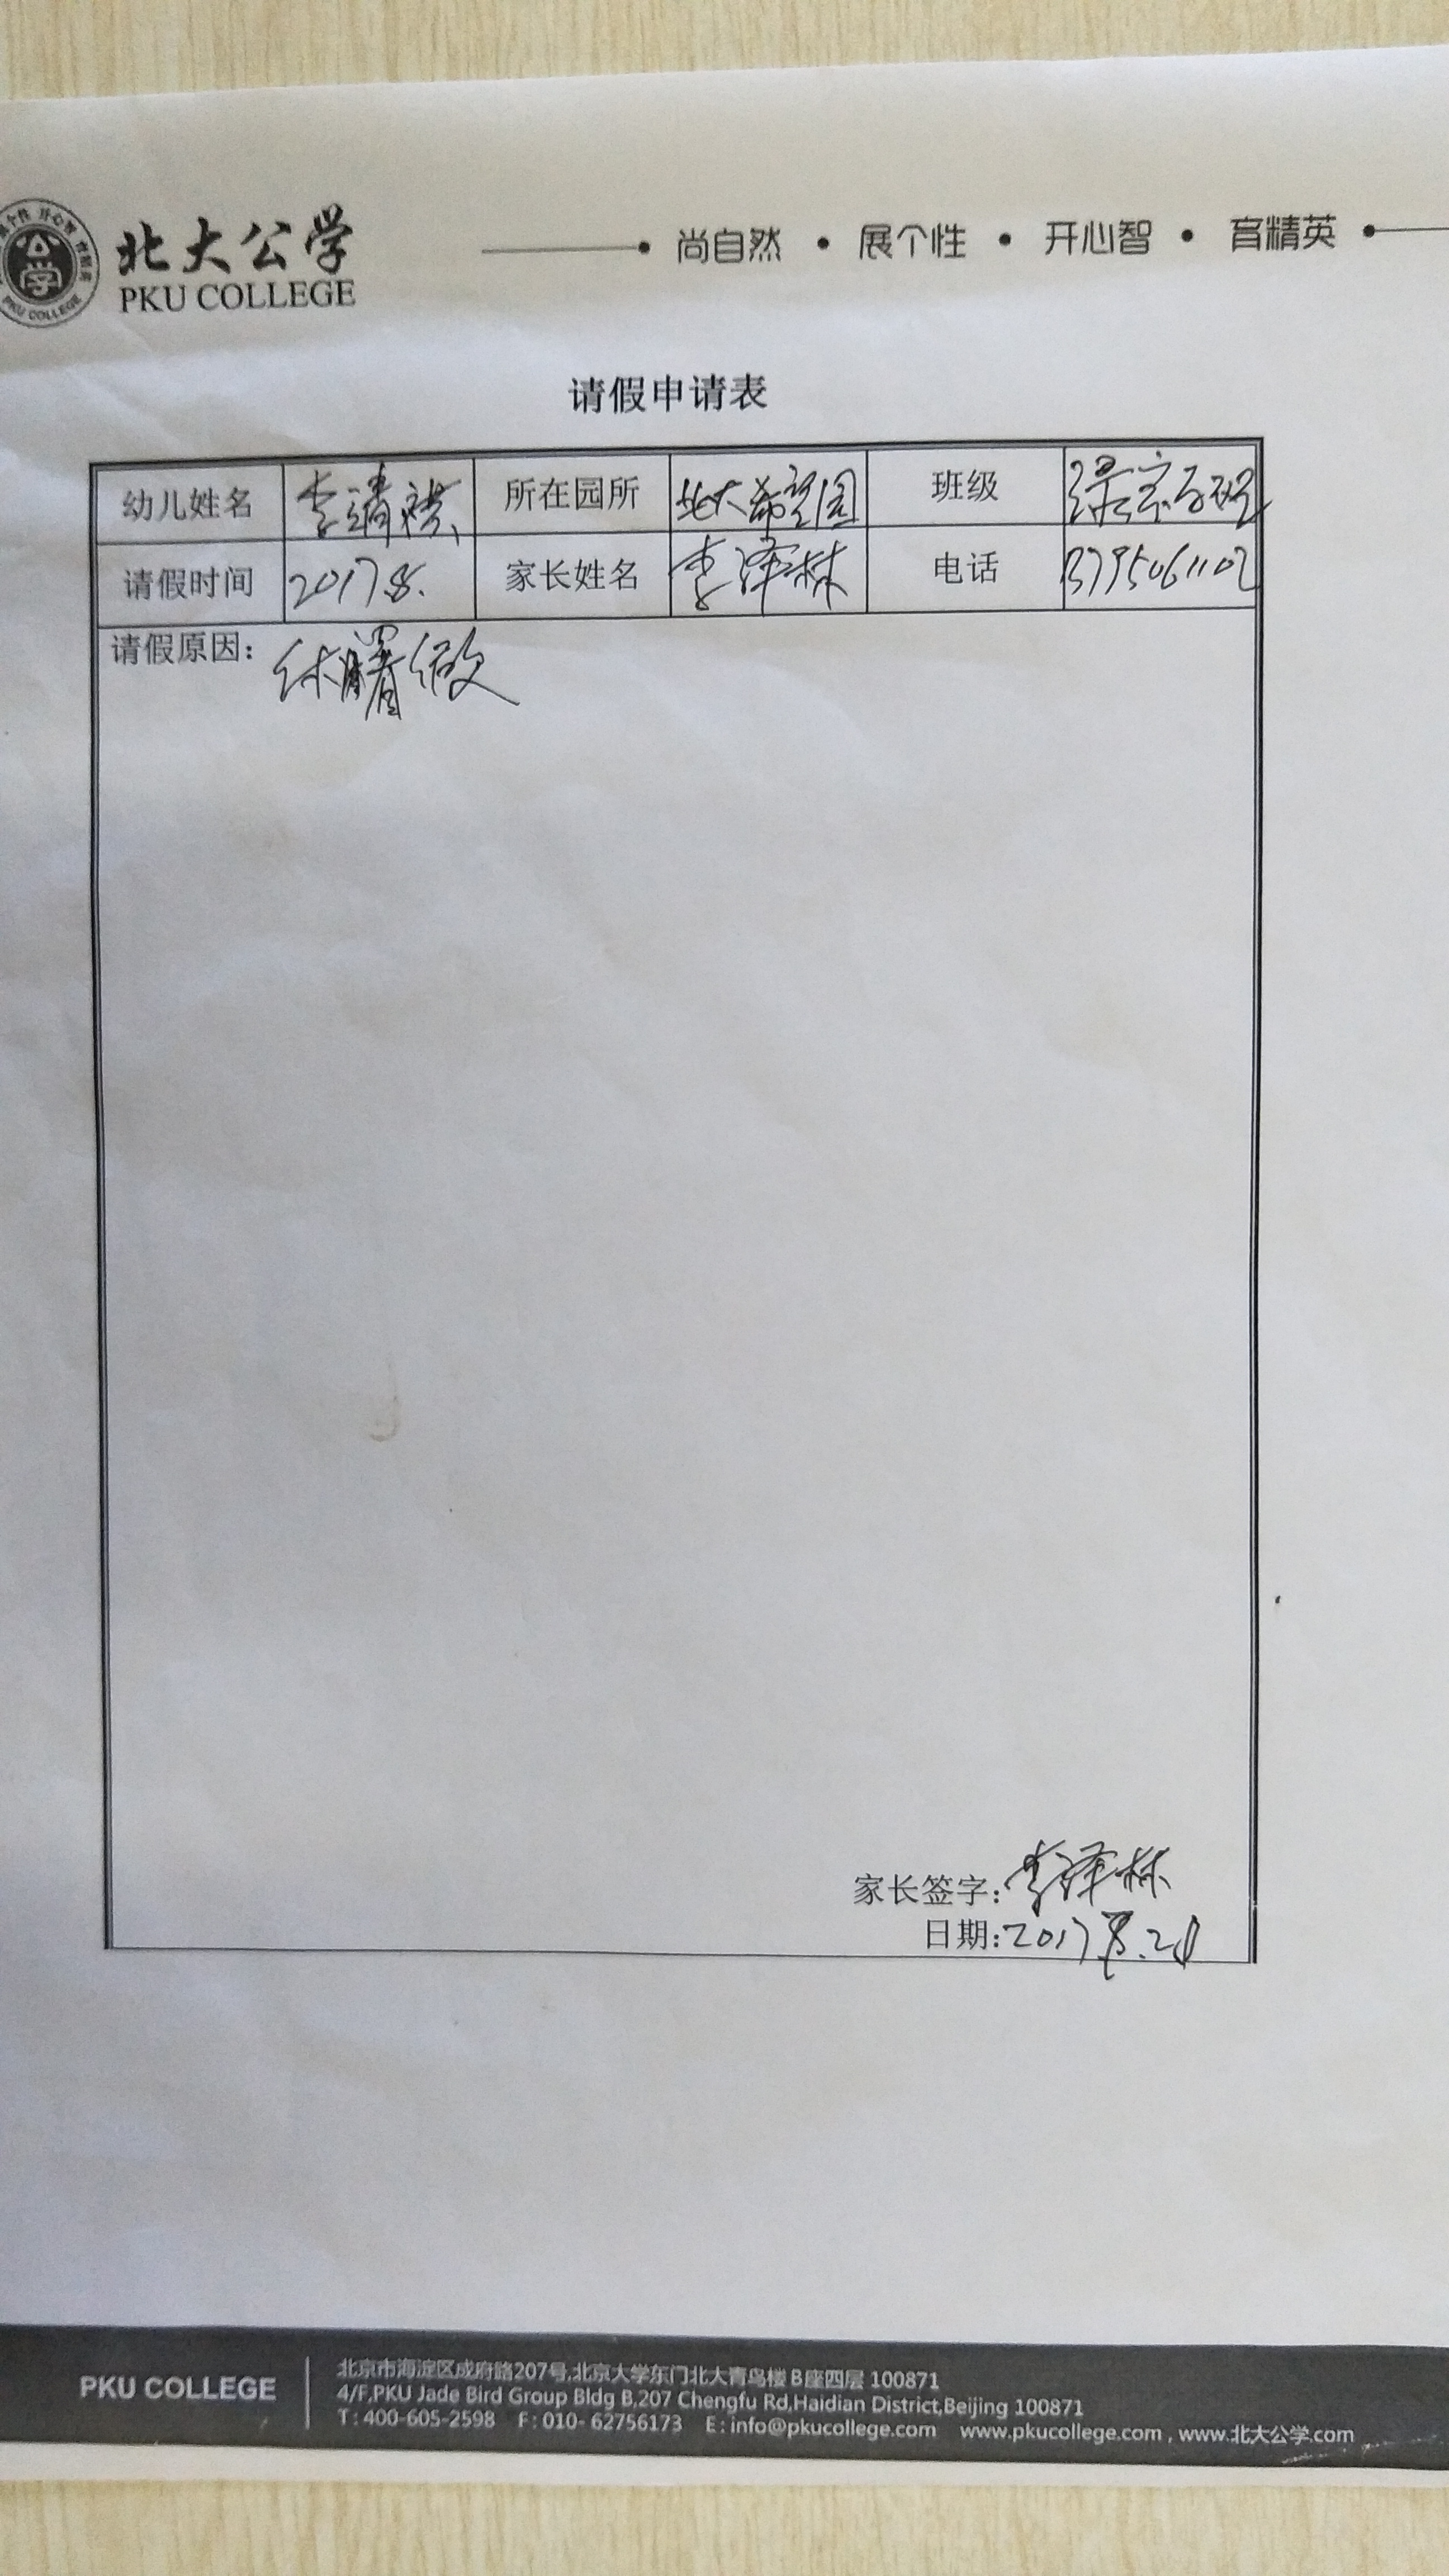 北大公学
PKU COLLEGE
尚自然 • 展个性 • 开心智 • 育精英
请假申请表
幼儿姓名 李靖祺 所在园所 北大希望园 班级
请假时间 2017.8. 家长姓名 李泽林 电话 13795061102
请假原因: 休暑假
家长签字: 李泽林
日期: 2017.8.21
PKU COLLEGE
北京市海淀区成府路207号,北京大学东门北大青鸟楼B座四层 100871
4/F,PKU Jade Bird Group Bldg B,207 Chengfu Rd,Haidian District,Beijing 100871
T: 400-605-2598 F: 010- 62756173 E: info@pkucollege.com www.pkucollege.com , www.北大公学.com